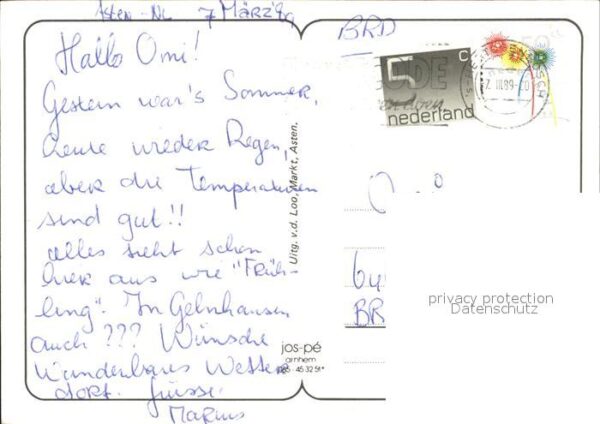 Asten - NL 7 März 89
BRD
Hallo Omi!
Gestern war's Sommer,
heute wieder Regen,
aber die Temperaturen
sind gut!!
alles sieht schon
hier aus wie "Früh-
ling". In Gelnhausen
auch ??? Wünsche
Wunderbares Wetter
dort. Grüsse
Marius
Uitg. v.d. Loo, Markt, Asten.
jos-pé
arnhem
5 c
nederland
7. III.89
BR
privacy protection
Datenschutz